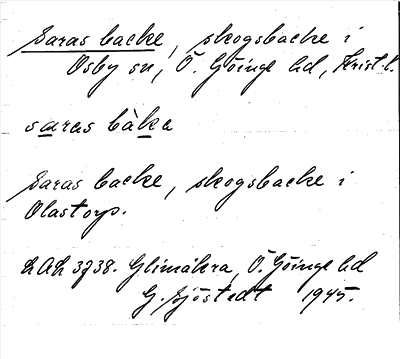 Saras backe, skogsbacke i
Osby sn, Ö. Göinge hd, Krist. l.
saras bàka
Saras backe, skogsbacke i
Olastorp.
LAL 3738. Glimåkra, Ö. Göinge hd
G. Sjöstedt 1945.